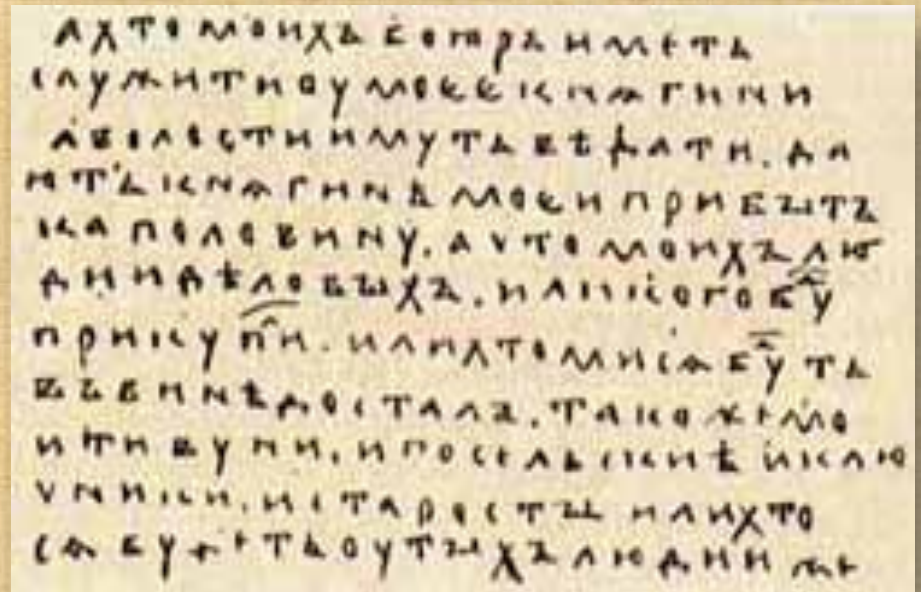 а хто моихъ бояръ иметь
служити оу моее кнѧгини
а волости имуть вѣдати. да
ють кнѧгинѣ моеи прибытъ
ка половину. а что моихъ лю
дии дѣловыхъ. или кого бу
прикупи. или хто ми сѧ бу ть
въ винѣ досталъ. тако же мо
и тивуни. и посельскиѣ и клю
чники. и старосты или хто
сѧ буде ть оу тыхъ людии же